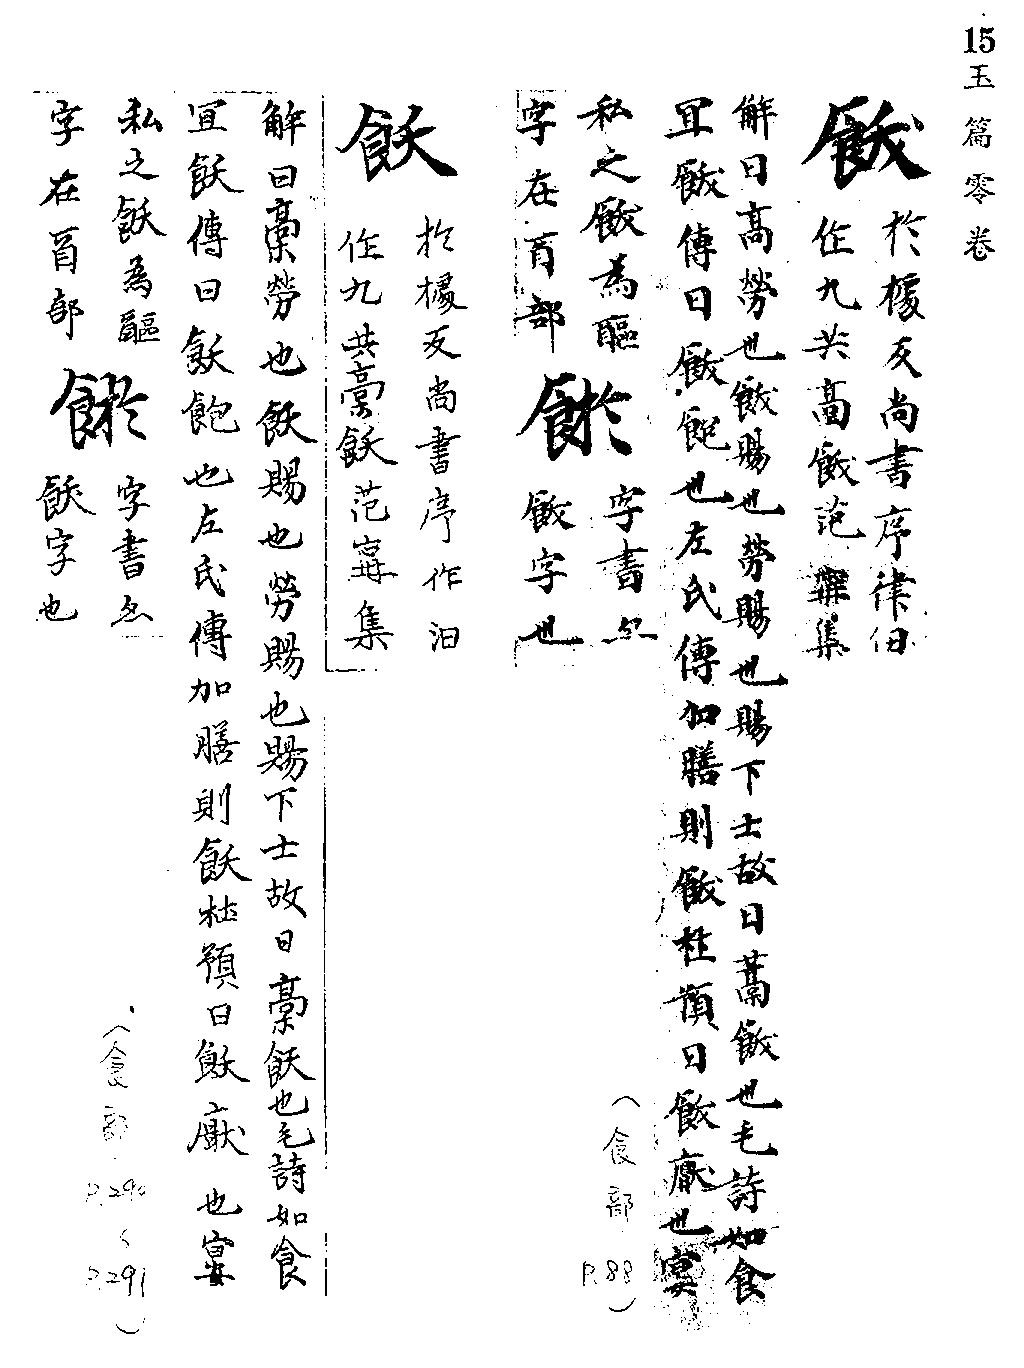 15
玉篇零卷
飫
於㯫反尚書序律汩
作九共槀飫范集
解曰高勞也飫賜也勞賜也賜下士故曰藁飫也毛詩如食
冝飫傳曰飫飽也左氏傳加膳則飫杜預曰飫猒也宴
私之飫為䤃
字在酉部
䬬
字書亦
飫字也
(食部 P.88)
飫
於㯫反尚書序作汨
作九共槀飫范集
解曰槀勞也飫賜也勞賜也賜下士故曰槀飫也毛詩如食
冝飫傳曰飫飽也左氏傳加膳則飫杜預曰飫猒也宴
私之飫為䤃
字在酉部
䬬
字書亦
飫字也
(食部 P.290~P.291)